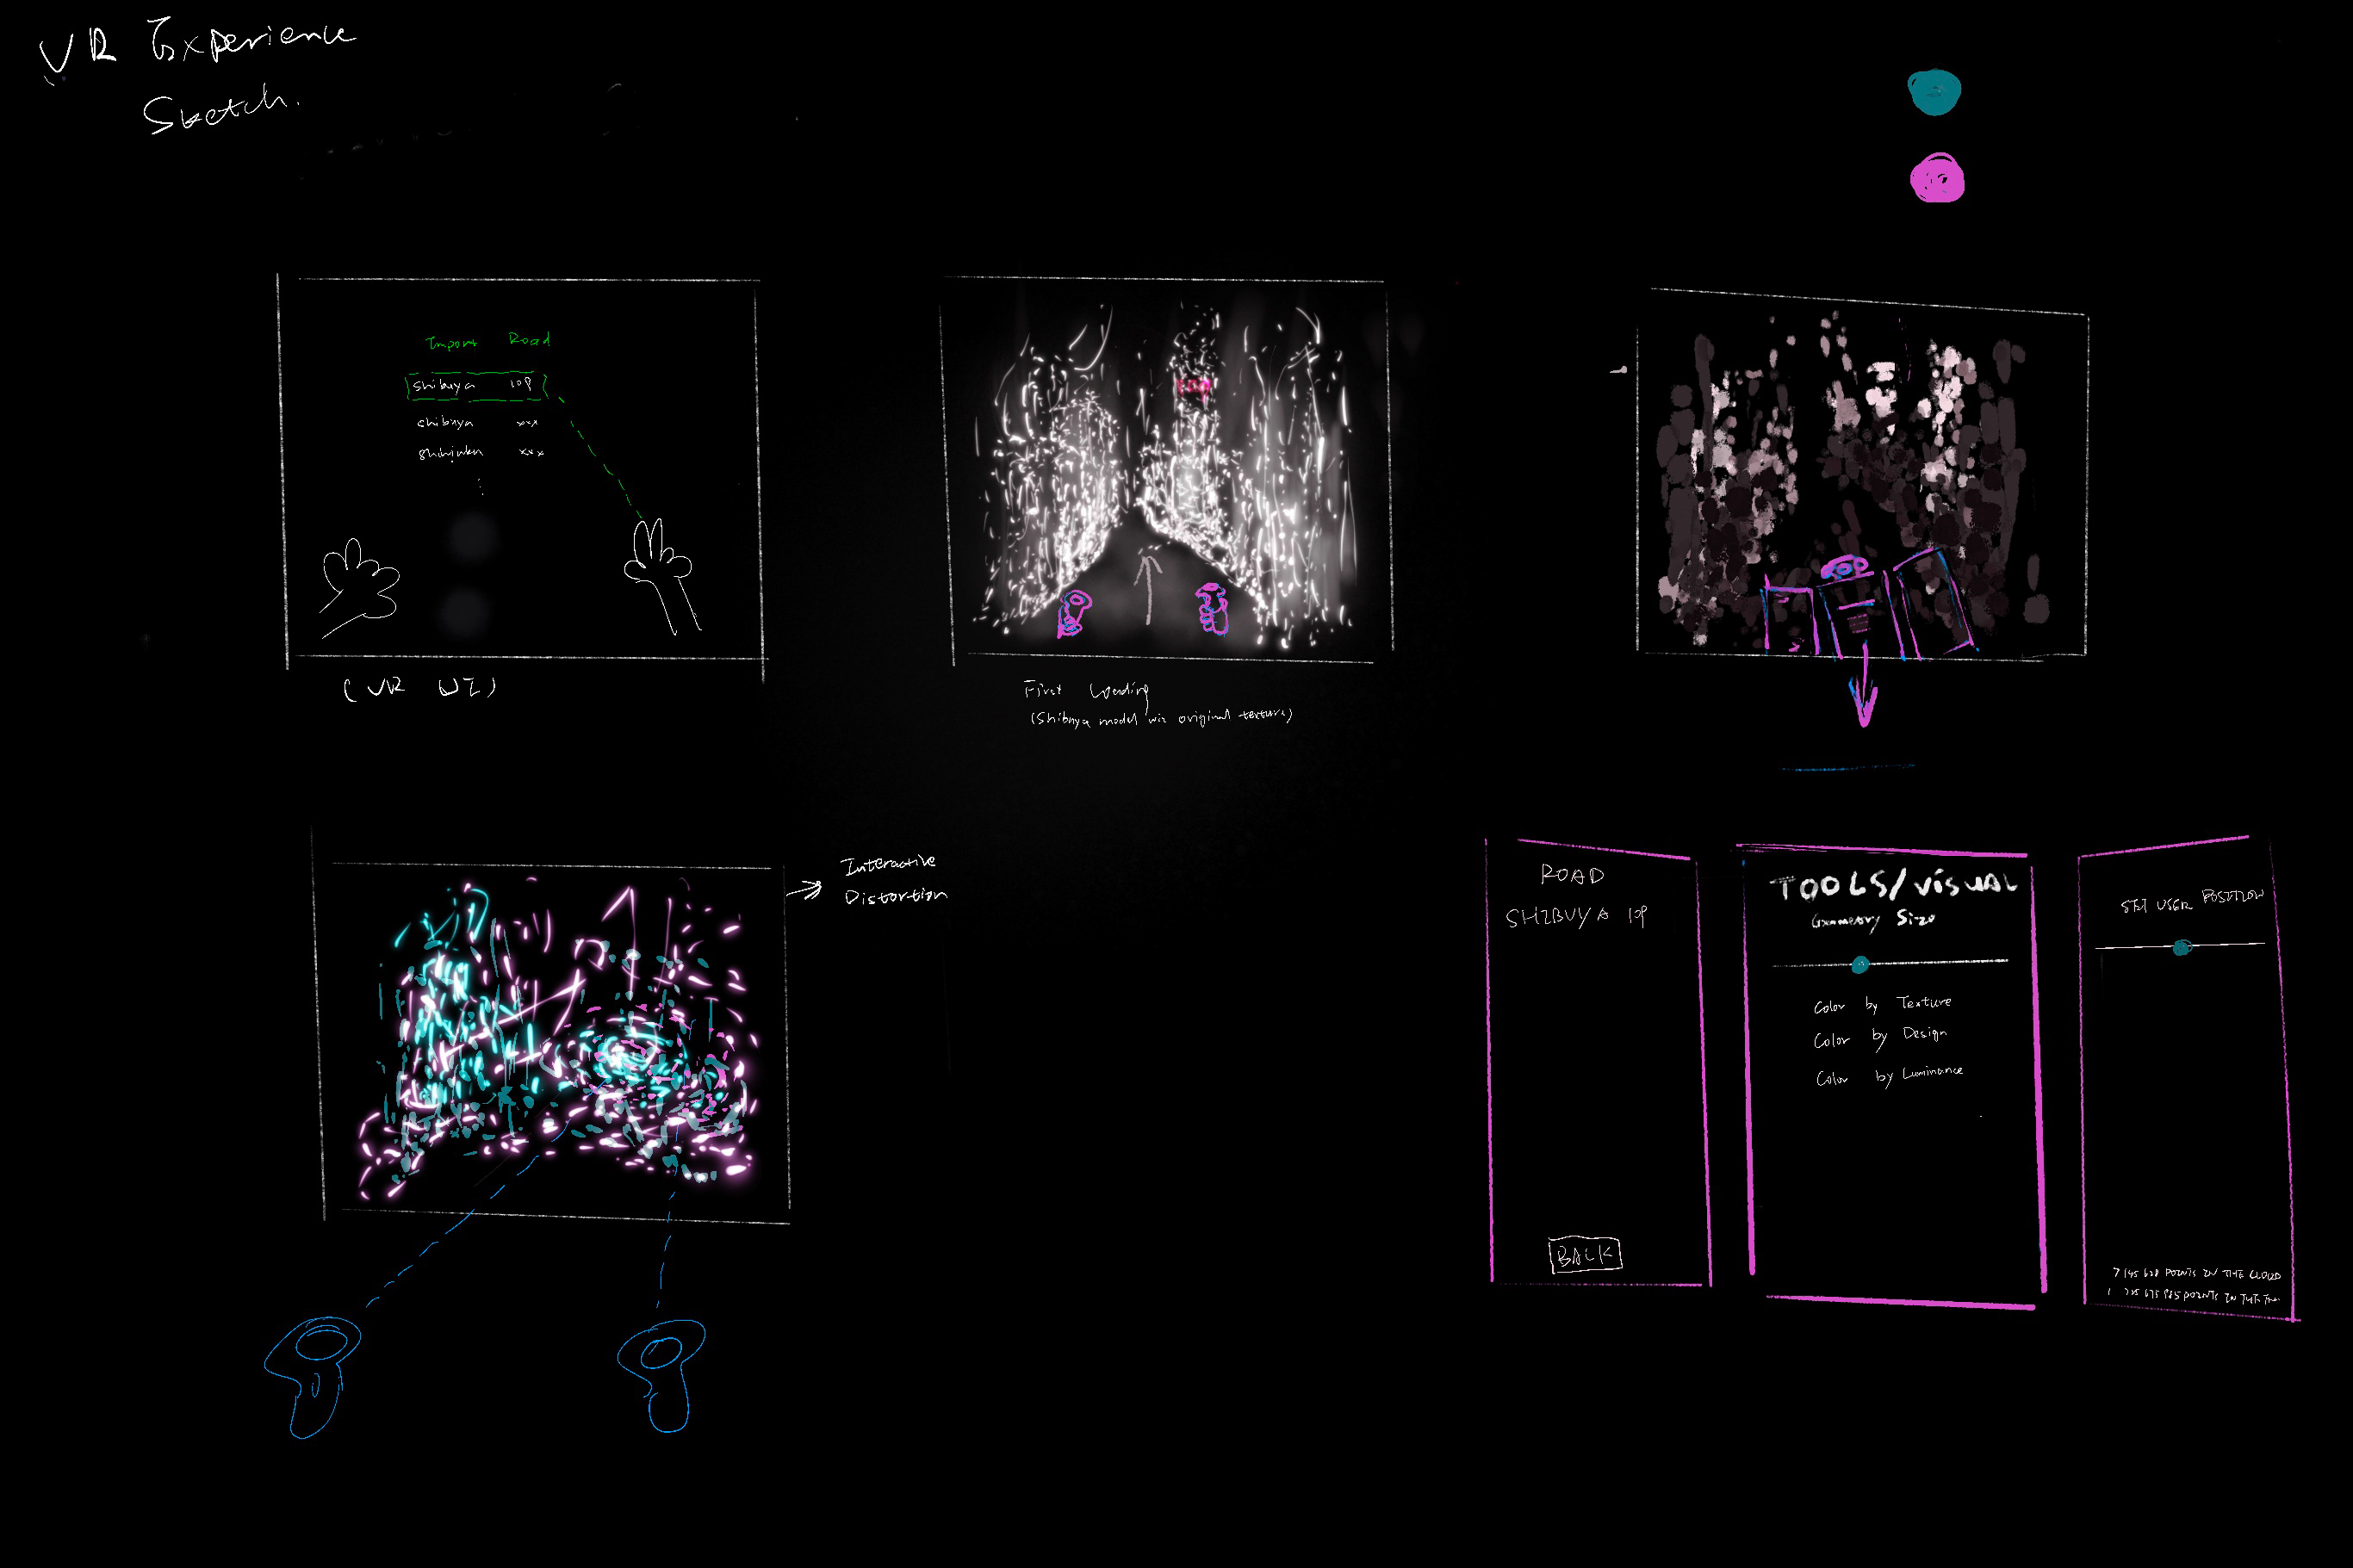 VR Experience
Sketch.
Import Road
Shibuya 109
shibuya xxx
xxx
(VR UI)
First Loading
(Shibuya model wiz original texture)
Interactive
Distortion
ROAD
SHIBUYA 109
BACK
TOOLS/VISUAL
Geometry Size
Color by Texture
Color by Design
Color by Luminance
SET USER POSITION
POINTS IN THE CLOUD
POINTS IN